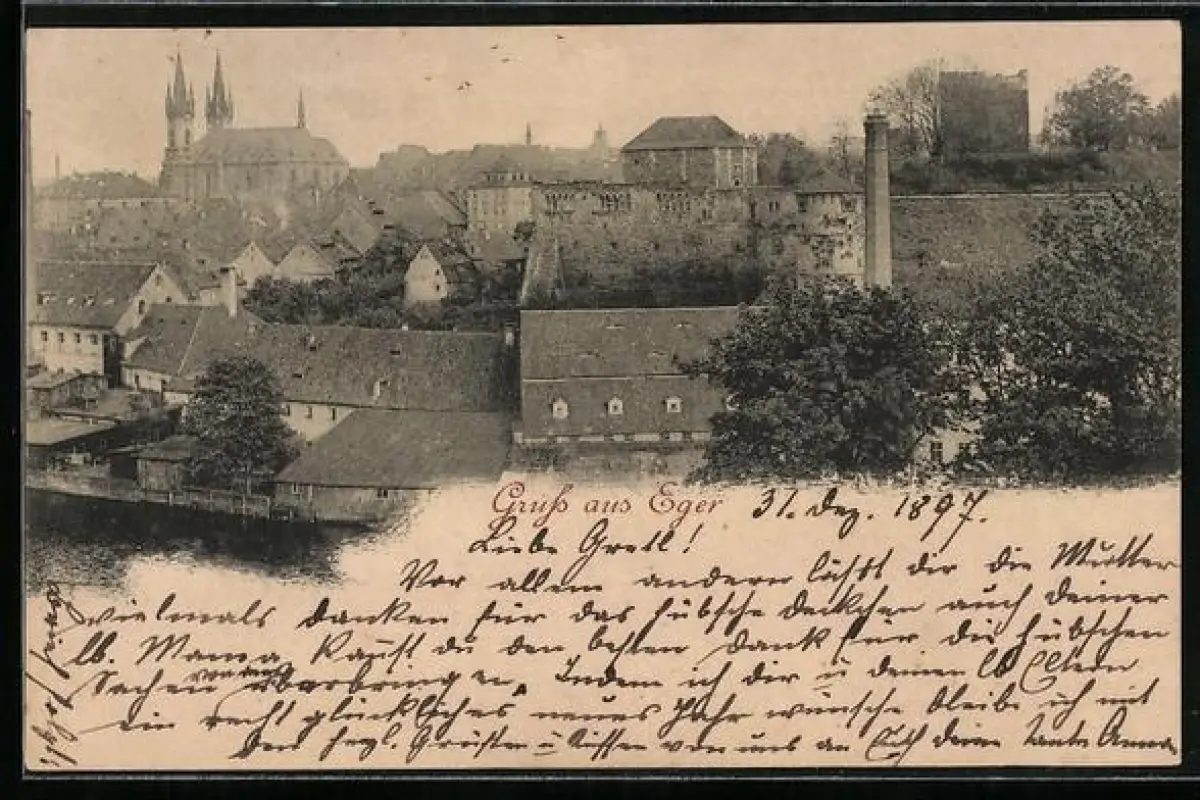 Gruß aus Eger 31. Dez. 1897.
Liebe Gretl!
Vor allem andern läßt dir die Mutter
vielmals danken für das hübsche Deckchen auch deiner
lb. Mama kannst du den besten Dank für die hübschen
Sachen überbringen. Indem ich dir u deinen lb Eltern
ein recht glückliches neues Jahr wünsche bleibe ich mit
den hrzl. Grüßen u Küssen von uns an Euch deine Tante Anna